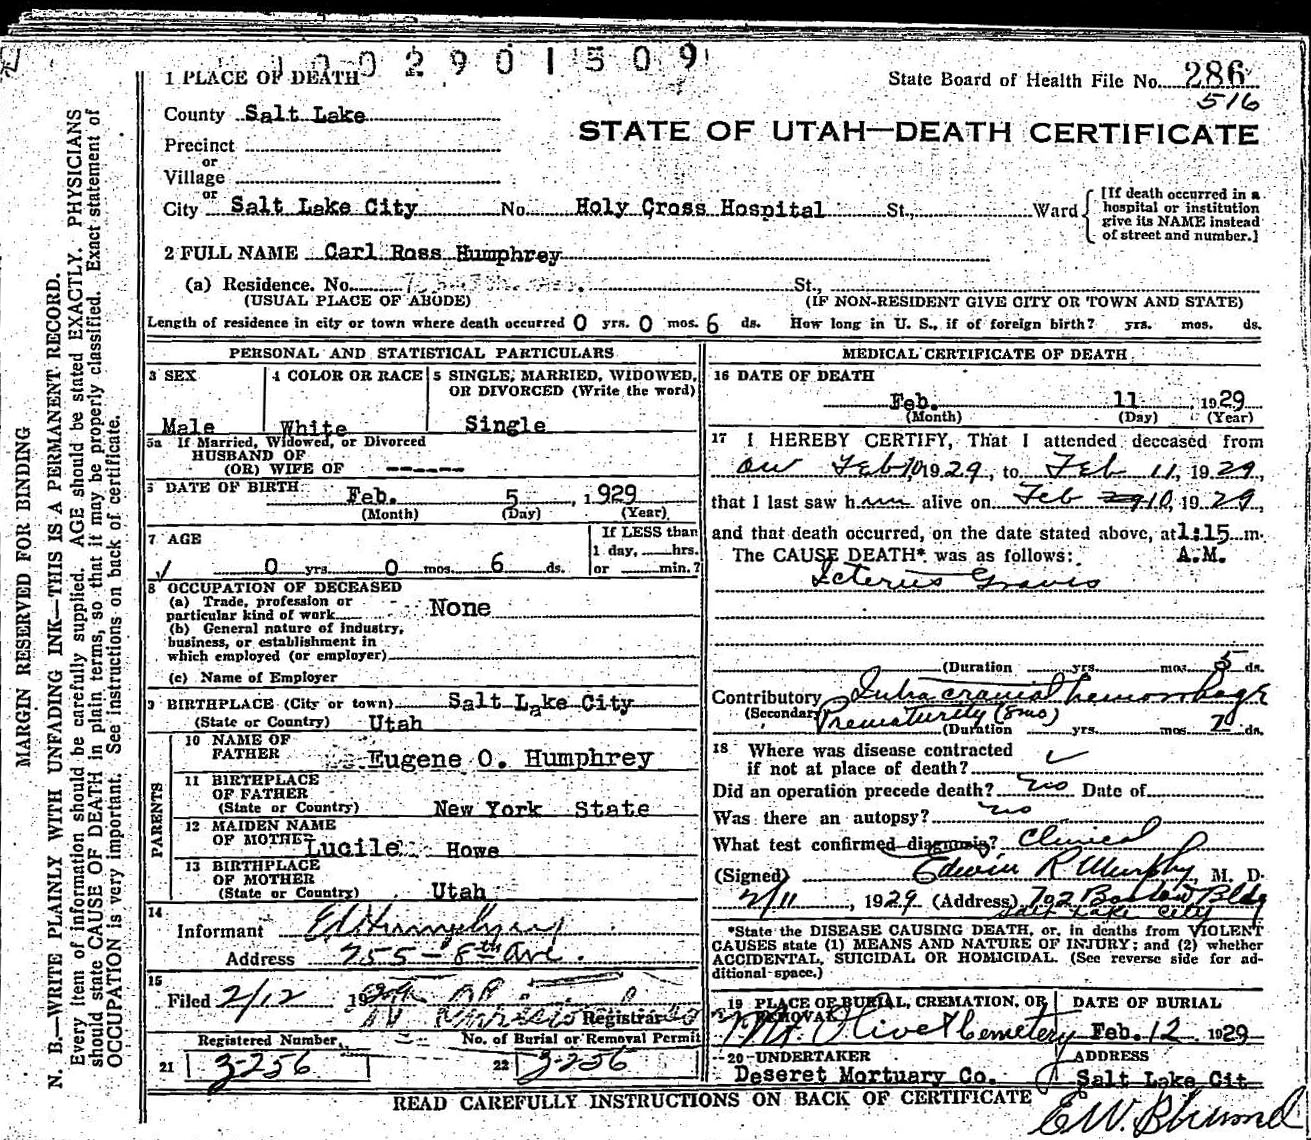 1002901509
1 PLACE OF DEATH
State Board of Health File No. 286
516
County Salt Lake
STATE OF UTAH—DEATH CERTIFICATE
Precinct
or
Village
or
City Salt Lake City No. Holy Cross Hospital St., Ward
[If death occurred in a
hospital or institution
give its NAME instead
of street and number.]
2 FULL NAME Carl Ross Humphrey
(a) Residence. No. St.,
(USUAL PLACE OF ABODE) (IF NON-RESIDENT GIVE CITY OR TOWN AND STATE)
Length of residence in city or town where death occurred 0 yrs. 0 mos. 6 ds. How long in U. S., if of foreign birth? yrs. mos. ds.
PERSONAL AND STATISTICAL PARTICULARS
3 SEX
Male
4 COLOR OR RACE
White
5 SINGLE, MARRIED, WIDOWED,
OR DIVORCED (Write the word)
Single
5a If Married, Widowed, or Divorced
HUSBAND OF
(OR) WIFE OF ------
6 DATE OF BIRTH
Feb. 5, 1929
(Month) (Day) (Year)
7 AGE
0 yrs. 0 mos. 6 ds.
If LESS than
1 day, hrs.
or min.?
8 OCCUPATION OF DECEASED
(a) Trade, profession or
particular kind of work None
(b) General nature of industry,
business, or establishment in
which employed (or employer)
(c) Name of Employer
9 BIRTHPLACE (City or town) Salt Lake City
(State or Country) Utah
PARENTS
10 NAME OF
FATHER Eugene O. Humphrey
11 BIRTHPLACE
OF FATHER
(State or Country) New York State
12 MAIDEN NAME
OF MOTHER Lucile Howe
13 BIRTHPLACE
OF MOTHER
(State or Country) Utah
14
Informant
Address 755 - 8th Ave.
15
Filed 2/12 19
Registrar
Registered Number No. of Burial or Removal Permit
21 3-256 22 3-256
MEDICAL CERTIFICATE OF DEATH
16 DATE OF DEATH
Feb. 11, 1929
(Month) (Day) (Year)
17 I HEREBY CERTIFY, That I attended deceased from
on Feb 10 1929, to Feb 11, 1929,
that I last saw him alive on Feb 10, 1929,
and that death occurred, on the date stated above, at 1:15 m.
The CAUSE DEATH* was as follows: A.M.
Icterus Gravis
(Duration yrs. mos. 5 ds.
Contributory Intra cranial hemorrhage
(Secondary) Prematurity (8mo)
(Duration yrs. mos. 7 ds.
18 Where was disease contracted
if not at place of death?
Did an operation precede death? no Date of
Was there an autopsy? no
What test confirmed diagnosis? Clinical
(Signed) Edwin R Murphy, M. D.
2/11, 1929 (Address) 702 Boston Bldg
Salt Lake City
*State the DISEASE CAUSING DEATH, or, in deaths from VIOLENT
CAUSES state (1) MEANS AND NATURE OF INJURY; and (2) whether
ACCIDENTAL, SUICIDAL OR HOMICIDAL. (See reverse side for ad-
ditional space.)
19 PLACE OF BURIAL, CREMATION, OR
REMOVAL
Mt. Olivet Cemetery
DATE OF BURIAL
Feb. 12 1929
20 UNDERTAKER
Deseret Mortuary Co.
ADDRESS
Salt Lake Cit
READ CAREFULLY INSTRUCTIONS ON BACK OF CERTIFICATE
MARGIN RESERVED FOR BINDING
N. B.—WRITE PLAINLY WITH UNFADING INK—THIS IS A PERMANENT RECORD.
Every item of information should be carefully supplied. AGE should be stated EXACTLY. PHYSICIANS
should state CAUSE OF DEATH in plain terms, so that it may be properly classified. Exact statement of
OCCUPATION is very important. See instructions on back of certificate.